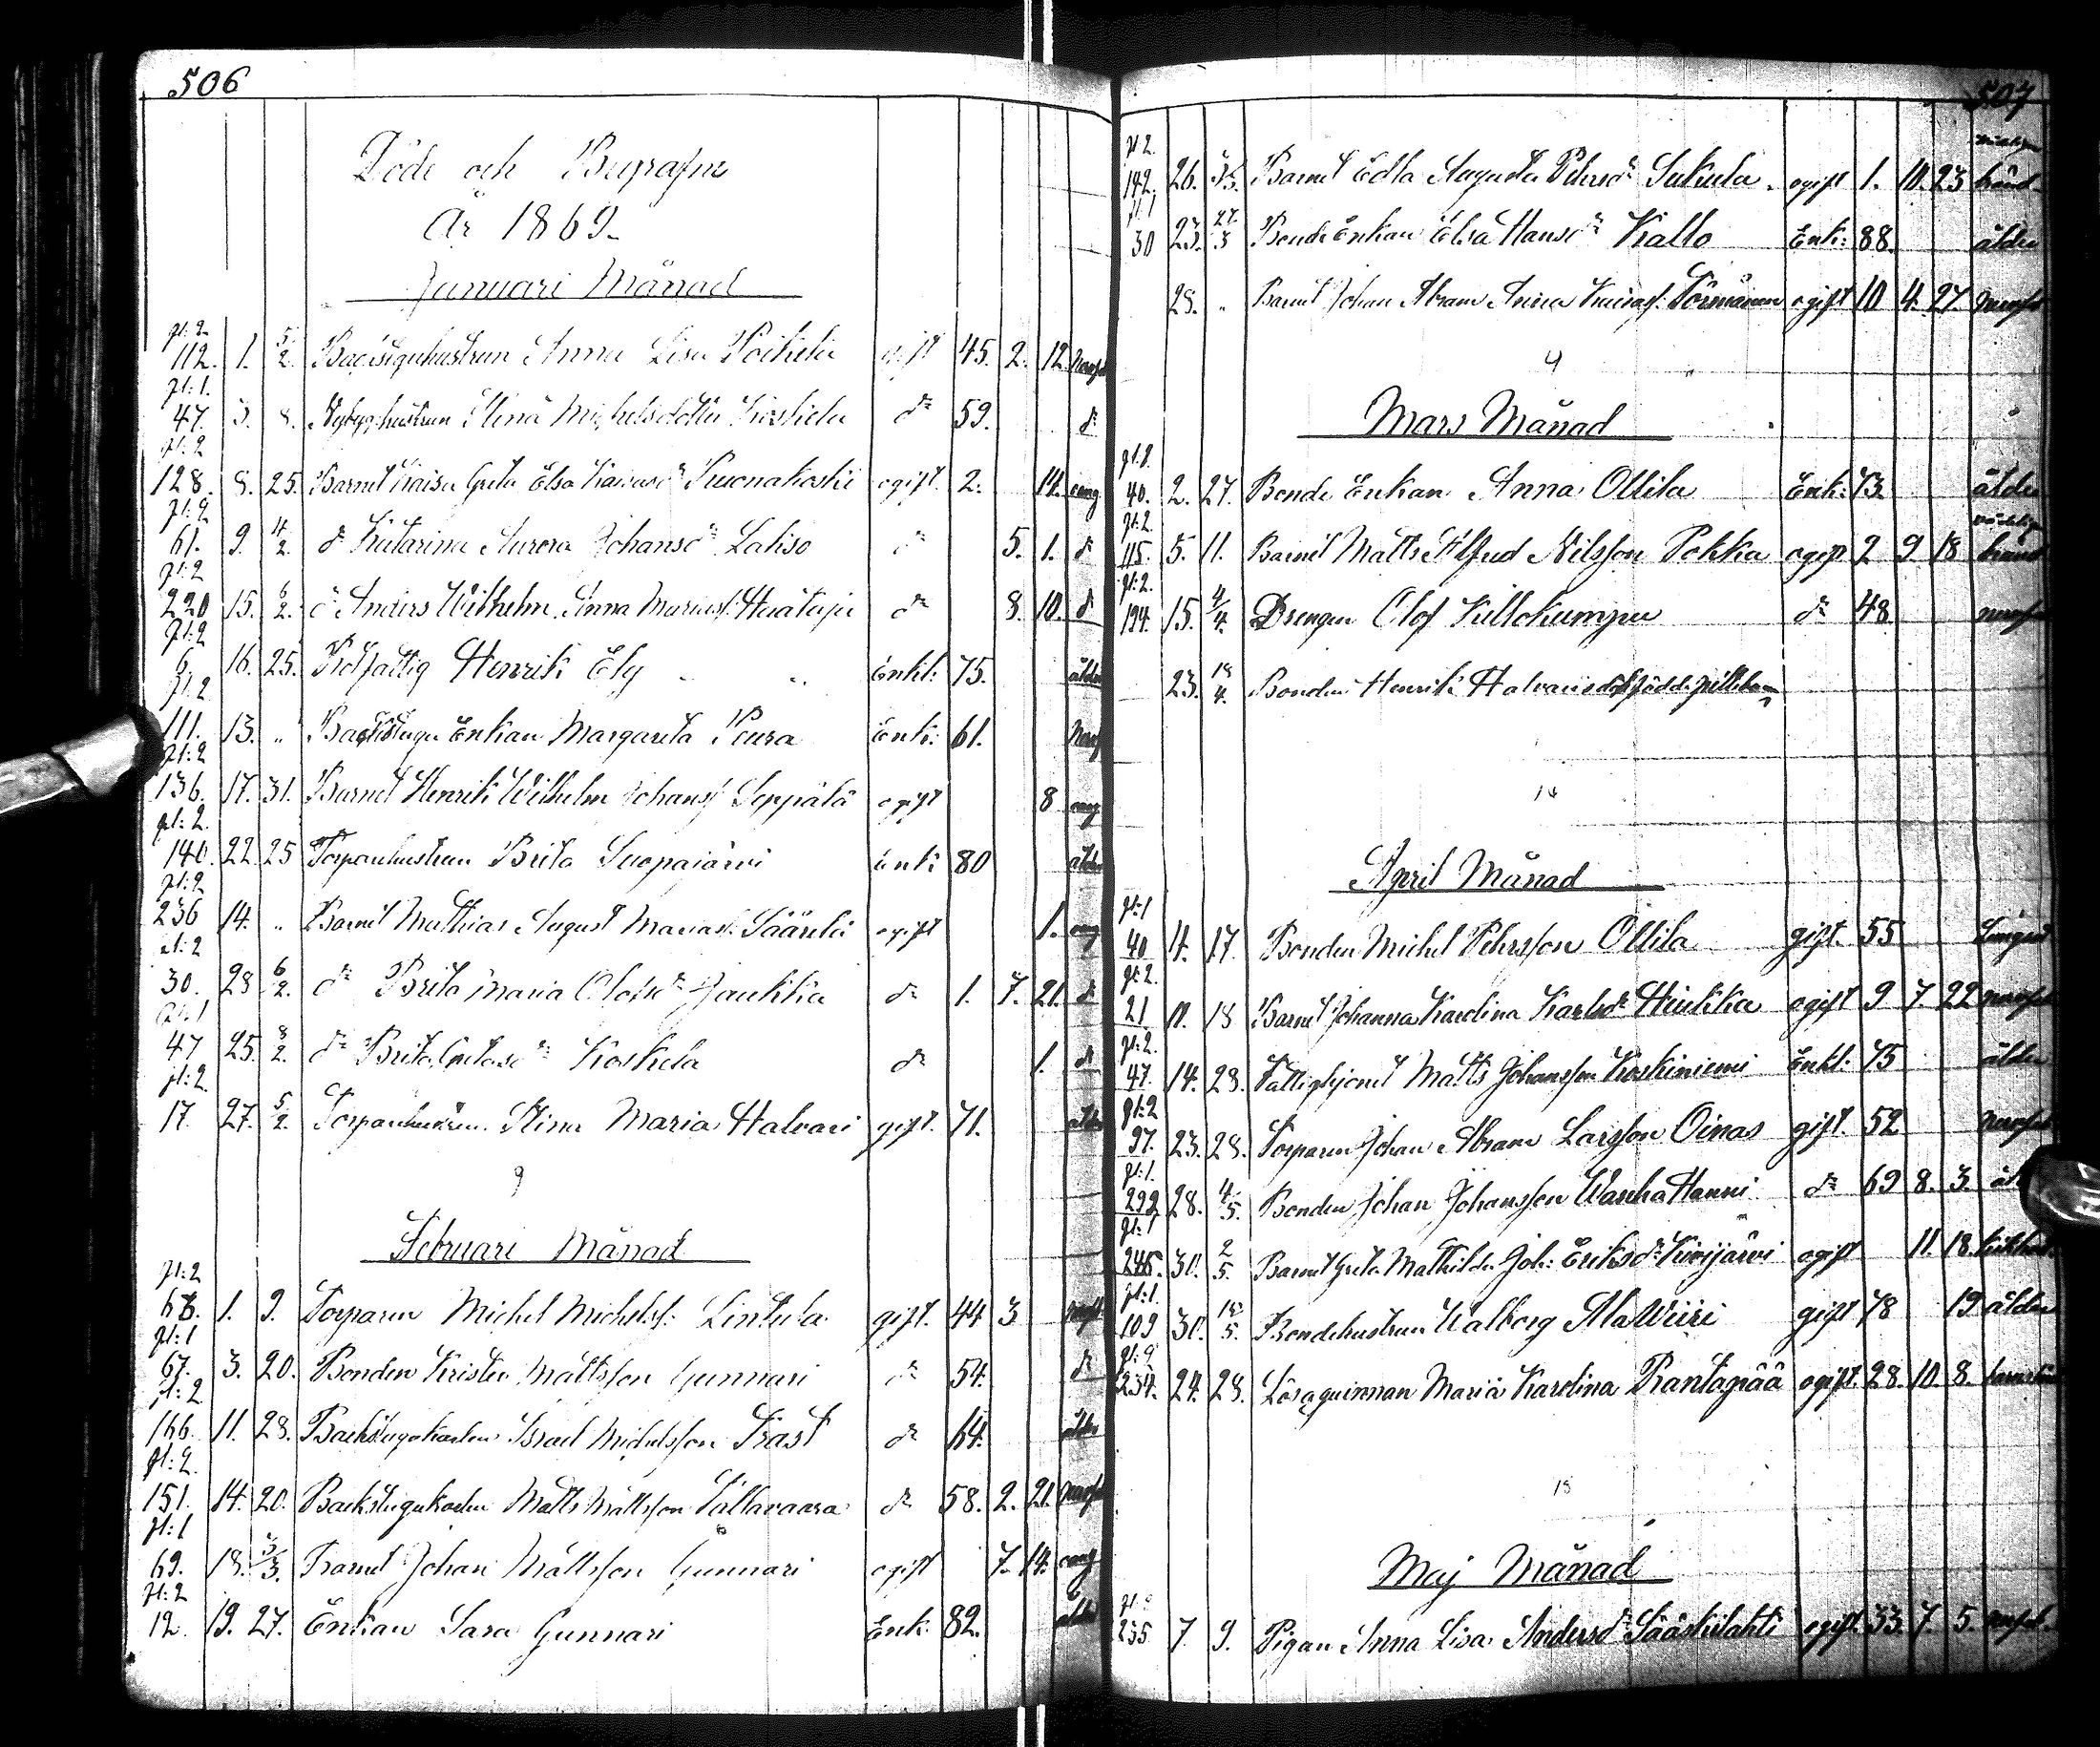 506
Döde och Begrafne
År 1869.
Januari Månad
pl: 2. 112. 1. 5/2. Backstguhustrun Anna Lisa Poikela gift 45. 2. 12. Nervf
pl: 1. 47. 3. 8. Nybyg:hustrun Stina Michelsdotter Koskela dº 59. dº
pl: 2 128. 8. 25. Barnet Kaisa Greta Elsa Kaisasdr Kuonakoski ogift. 2. 14. ang
pl: 2 61. 9. 4/2. dº Katarina Aurora Johansdr Lahiso dº 5. 1. dº
pl: 2 220 15. 6/2. dº Anders Wilhelm Anna Mariasf: Haataja dº 8. 10. dº
pl: 2 6. 16. 25. Rotfattig Henrik Ely Enkl: 75. ålder
pl. 2 111. 13. " Backstugu Enkan Margareta Peura Enk: 61. Nervf
pl: 2 136. 17. 31. Barnet Henrik Wilhelm Johansf Seppälä ogift 8 ang
pl: 2. 140. 22. 25 Torparehustrun Brita Suopajärvi Enk: 80 ålder
pl: 2 236 14. " Barnet Mathias August Mariasf: Säärelä ogift 1. ang
pl: 2 30. 28 6/2. dº Brita Maria Olofsdr Jaukka dº 1. 7. 21. dº
pl: 1 47 25. 8/2. dº Brita Gretasdr Koskela dº 1. dº
pl: 2 17. 27. 5/2. Torparehustrun Stina Maria Halvari gift. 71. ålder
9
Februari Månad
pl: 2 1. 9. Torparen Michel Michelsf: Lintula gift. 44 3 nervf
pl: 1 67. 3. 20. Bonden Krister Mattsson Gunnari dº 54. dº
pl: 2 166. 11. 28. Backstugukarlen Israel Michelsson Trast dº 64. ålder
pl: 2. 151. 14. 20. Backstugukarlen Matts Mattsson Tallavaara dº 58. 2. 21. nervf
pl: 1 69. 18. 3/3. Barnet Johan Mattsson Gunnari ogift 7. 14. ang
pl: 2 12. 19. 27. Enkan Sara Gunnari Enk. 82. ålder
507
pl 2. 142. 26. Barnet Edla Augusta Pehrsdr Sukula ogift 1. 10. 23 händ.
pl: 1 30 23. 27/3 Bonde Enkan Elsa Hansdr Kallo Enk: 88. ålder
28. " Barnet Johan Abram Anna Kaisasf: Törmänen ogift 10 4. 27. nervf
4
Mars Månad
40. 2. 27. Bonde Enkan Anna Ollila Enk: 73. ålder
pl: 2. 115. 5. 11. Barnet Matts Alfred Nilsson Pokka ogift 2 9 18 händ
pl: 2. 194. 15. 4/4. Drengen Olof Kellokumpu dº 48 nervf
23. 18/4. Bonden Henrik Halvaris dödfödde gillebarn
14
April Månad
pl: 1 40 4. 17. Bonden Michel Pehrsson Ollila gift. 55 Lungsot
pl: 2. 21 11. 18 Barnet Johanna Karolina Karlsdr Hiukka ogift 9 7 22 nervf
pl: 2. 47. 14. 28. Fattighjonet Matts Johansson Koskiniemi Enkl: 75 ålder
pl: 2 97. 23. 28. Torparen Johan Abram Larsson Oinas gift. 52 nervf
pl: 1. 292 28. 4/5. Bonden Johan Johansson Wanha Hanni dº 69 8. 3. ål
pl: 1 246. 30. 2/5. Barnet Greta Mathilda Joh: Eriksdr Kivijärvi ogift 11 18. kikhost
pl: 1. 109 30. 18/5. Bondehustrun Walborg AlaWiiri gift 78 19 ålder
234. 24. 28. Lösaquinnan Maria Karolina Rantapää ogift. 28. 10. 8. barnsbörd
15
Maj Månad
235 7. 9. Pigan Anna Lisa Andersdr Sääskilahti ogift. 33. 7. 5. nervf.